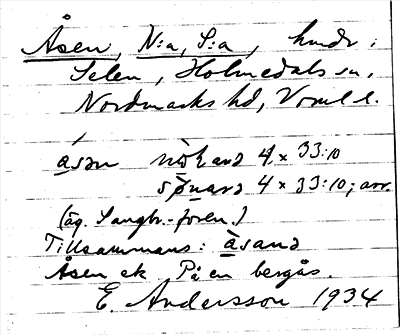 Åsen, N:a, S:a, hmdr i
Selen, Holmedals sn,
Nordmarks hd, Vrml l.
åsan 4 x 33:10
4 x 33:10; arr.
(äg. Långbr.-fören.)
Tillsammans: åsana
Åsen ek På en bergås.
E. Andersson 1934